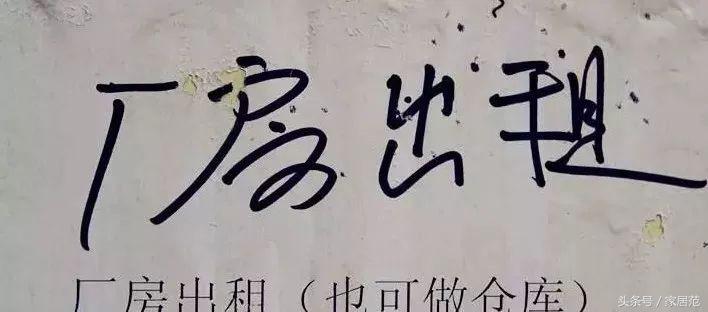 厂房出租
厂房出租（也可做仓库）
头条号/家居范